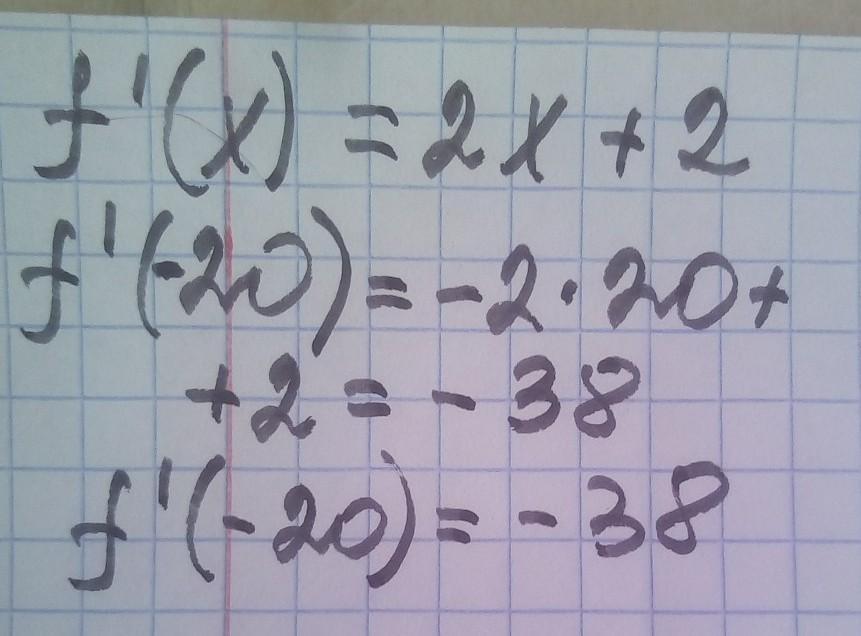 f'(x) = 2x + 2
f'(-20) = -2·20+
+2 = -38
f'(-20) = -38